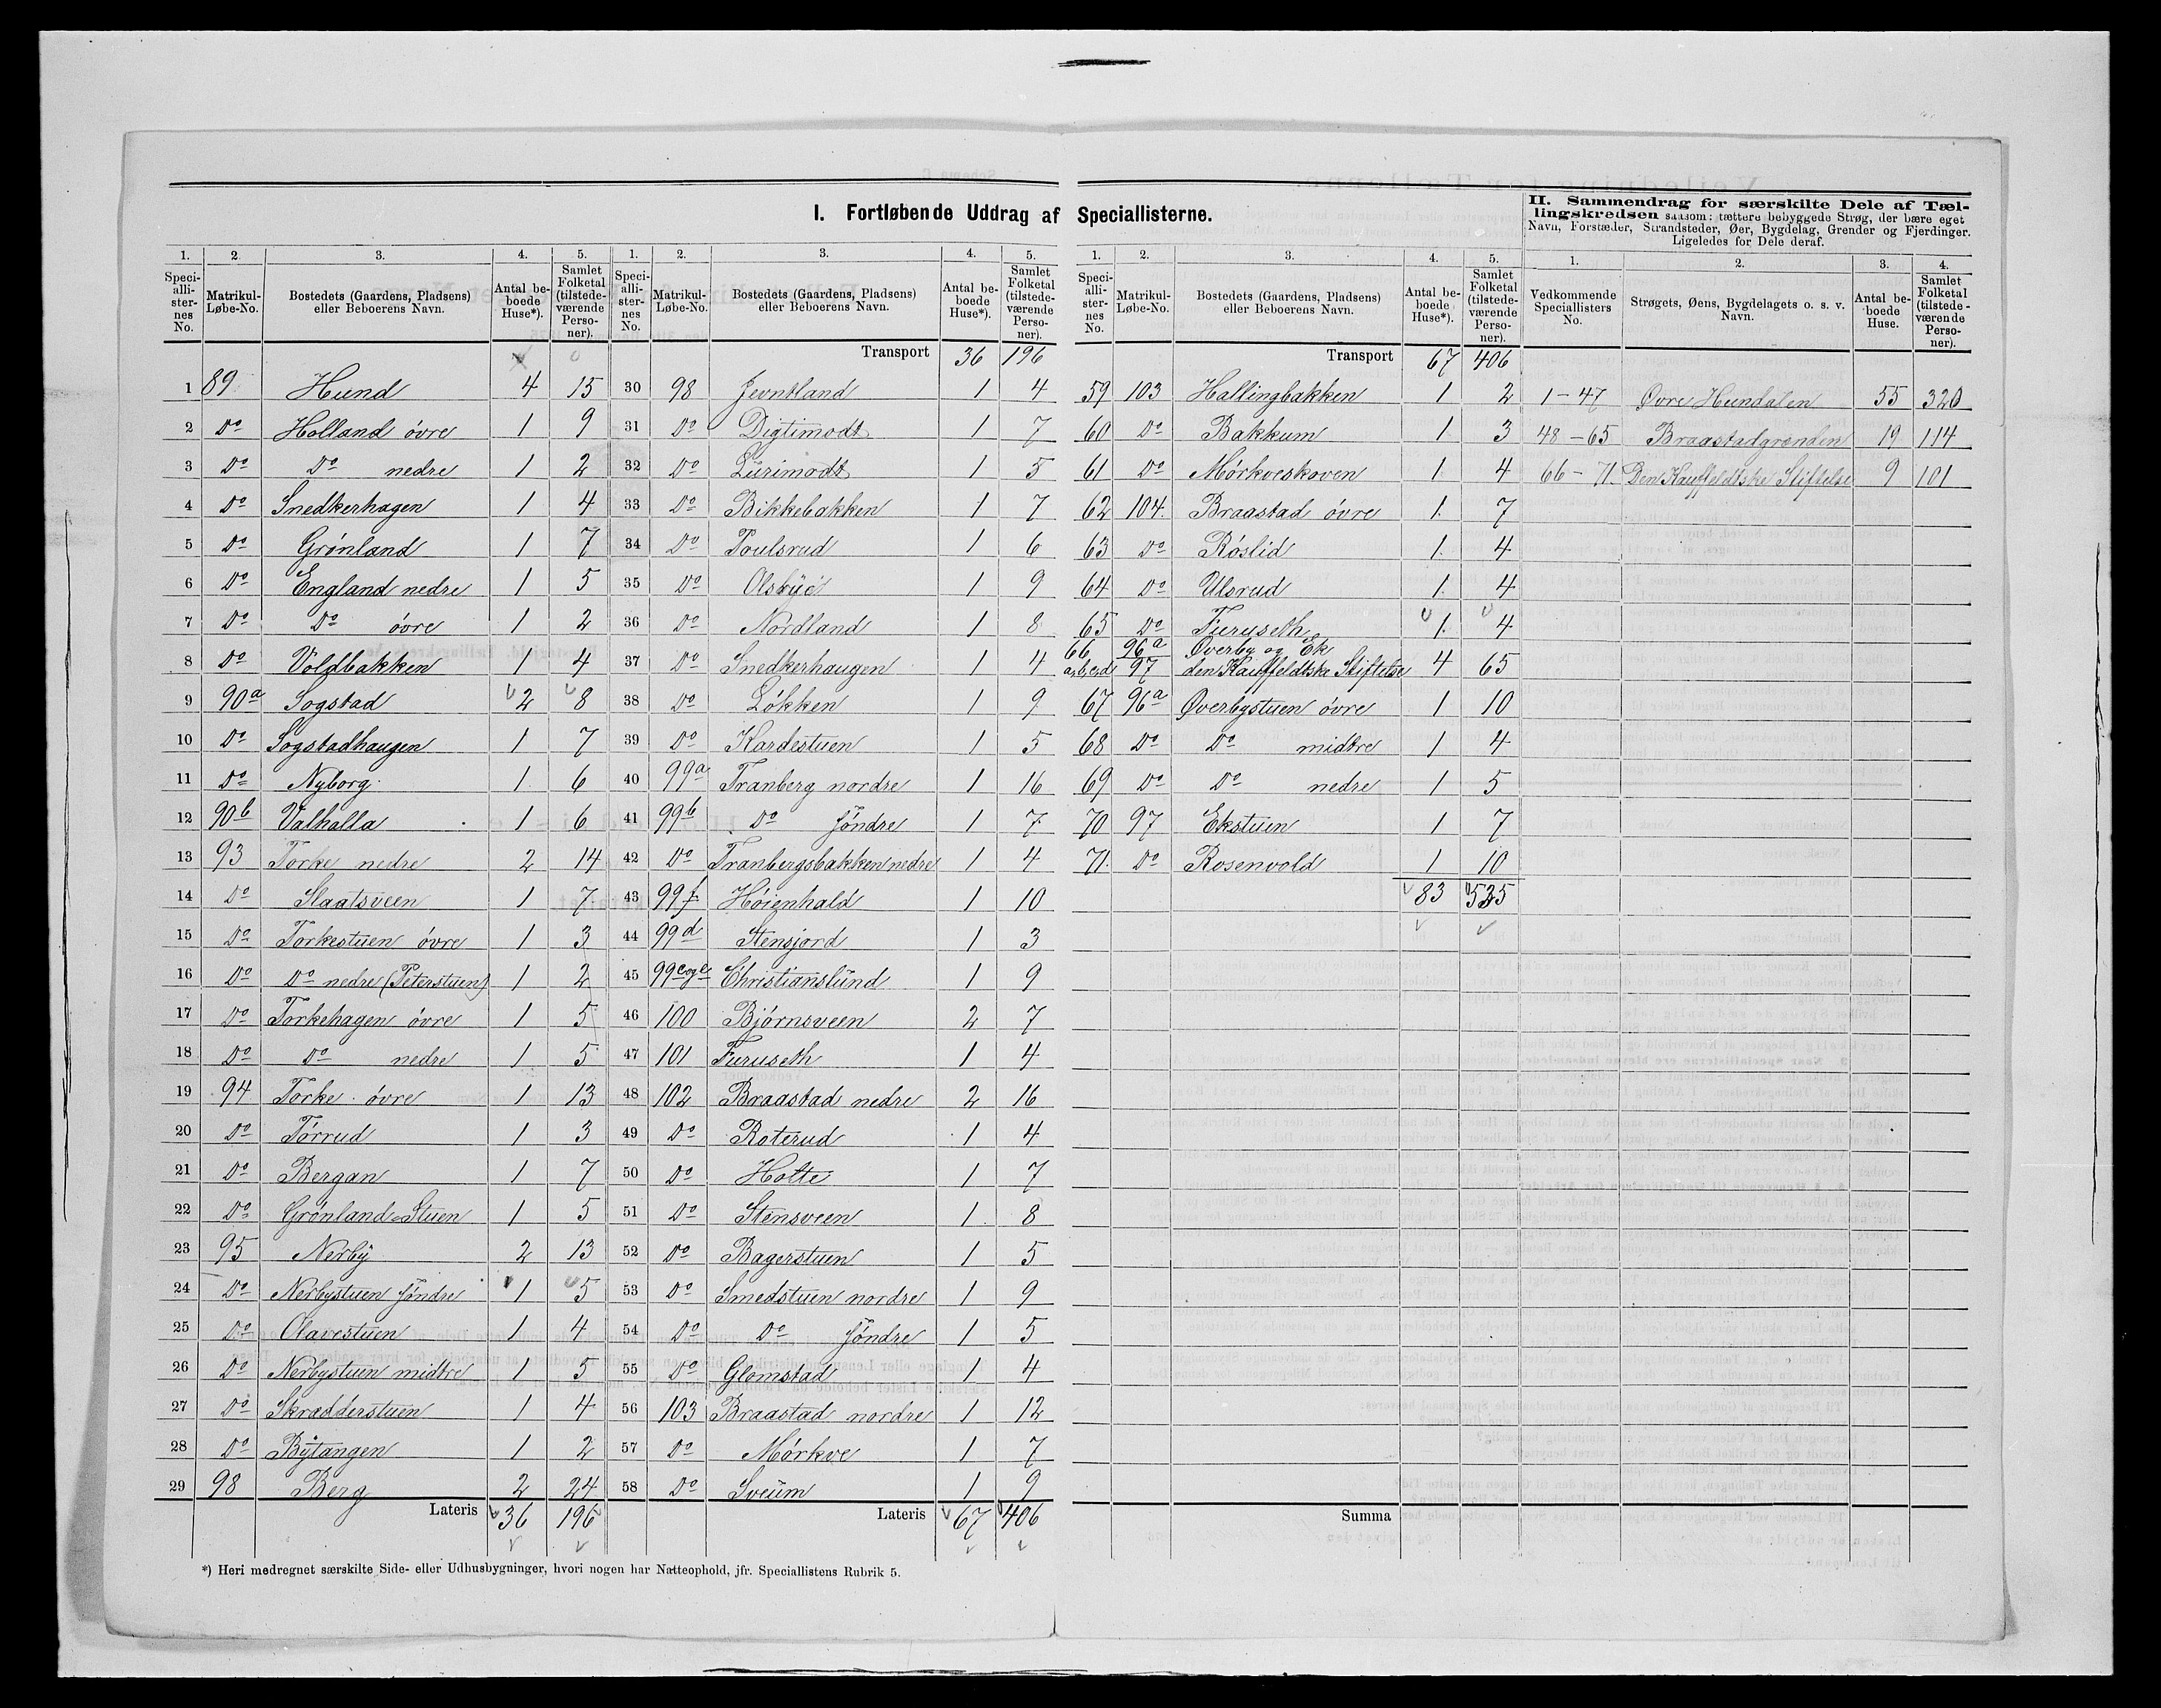 I. Fortløbende Uddrag af Speciallisterne.
II. Sammendrag for særskilte Dele af Tæl-
lingskredsen saasom: tættere bebyggede Strøg, der bære eget
Navn, Forstæder, Strandsteder, Øer, Bygdelag, Grender og Fjerdinger.
Ligeledes for Dele deraf.
1. 2. 3. 4. 5.
Speci-alli-ster-nes No. Matrikul-Løbe-No. Bostedets (Gaardens, Pladsens) eller Beboerens Navn. Antal be-boede Huse*). Samlet Folketal (tilstede-værende Perso-ner).
1 89 Hund 4 15
2 Do Holland övre 1 9
3 Do Do nedre 1 2
4 Do Snedkerhagen 1 4
5 Do Grönland 1 7
6 Do England nedre 1 5
7 Do Do övre 1 2
8 Do Voldbakken 1 4
9 90a Sogstad 2 8
10 Do Sogstadhaugen 1 7
11 Do Nyborg 1 6
12 90b Valhalla 1 6
13 93 Torke nedre 2 14
14 Do Slaatsveen 1 7
15 Do Torkestuen övre 1 3
16 Do Do nedre (Peterstuen) 1 2
17 Do Torkehagen övre 1 5
18 Do Do nedre 1 5
19 94 Torke övre 1 13
20 Do Törrud 1 3
21 Do Bergan 1 7
22 Do Grönland-Stuen 1 5
23 95 Nerby 2 13
24 Do Nerbystuen söndre 1 5
25 Do Olavestuen 1 4
26 Do Nerbystuen midtre 1 5
27 Do Skrædderstuen 1 4
28 Do Bytangen 1 2
29 98 Berg 2 24
Lateris 36 196
1. 2. 3. 4. 5.
Speci-alli-ster-nes No. Matrikul-Løbe-No. Bostedets (Gaardens, Pladsens) eller Beboerens Navn. Antal be-boede Huse*). Samlet Folketal (tilstede-værende Perso-ner).
Transport 36 196
30 98 Jevntland 1 4
31 Do Digtimodt 1 7
32 Do Lurimodt 1 5
33 Do Bikkebakken 1 7
34 Do Poulsrud 1 6
35 Do Olsbye 1 9
36 Do Nordland 1 8
37 Do Snedkerhaugen 1 4
38 Do Lökken 1 9
39 Do Kardestuen 1 5
40 99a Tranberg nordre 1 16
41 99b Do söndre 1 7
42 Do Tranbergsbakken nedre 1 4
43 99f Höienhald 1 10
44 99d Stensjord 1 3
45 99c og e Christianslund 1 9
46 100 Björnsveen 2 7
47 101 Furuseth 1 4
48 102 Braastad nedre 2 16
49 Do Roterud 1 4
50 Do Holte 1 7
51 Do Stensveen 1 8
52 Do Bagerstuen 1 5
53 Do Smedstuen nordre 1 9
54 Do Do söndre 1 5
55 Do Glomstad 1 4
56 103 Braastad nordre 1 12
57 Do Mörkve 1 7
58 Do Sveum 1 9
Lateris 67 406
1. 2. 3. 4. 5.
Speci-alli-ster-nes No. Matrikul-Løbe-No. Bostedets (Gaardens, Pladsens) eller Beboerens Navn. Antal be-boede Huse*). Samlet Folketal (tilstede-værende Perso-ner).
Transport 67 406
59 103 Hallingbakken 1 2
60 Do Bakkum 1 3
61 Do Mörkveskoven 1 4
62 104 Braastad övre 1 7
63 Do Röslid 1 4
64 Do Ulsrud 1 4
65 Do Furuseth 1 4
66 96a Øverby og Ek
a,b,c,d 97 den Kauffeldtske Stiftelse 4 65
67 96a Øverbystuen övre 1 10
68 Do Do midtre 1 4
69 Do Do nedre 1 5
70 97 Ekstuen 1 7
71 Do Rosenvold 1 10
83 535
Summa
1. 2. 3. 4.
Vedkommende Speciallisters No. Strøgets, Øens, Bygdelagets o. s. v. Navn. Antal be-boede Huse. Samlet Folketal (tilstede-værende Perso-ner).
1-47 Øvre Hundalen 55 320
48-65 Braastadgrenden 19 114
66-71 Den Kauffeldtske Stiftelse 9 101
*) Heri medregnet særskilte Side- eller Udhusbygninger, hvori nogen har Natteophold, jfr. Speciallistens Rubrik 5.